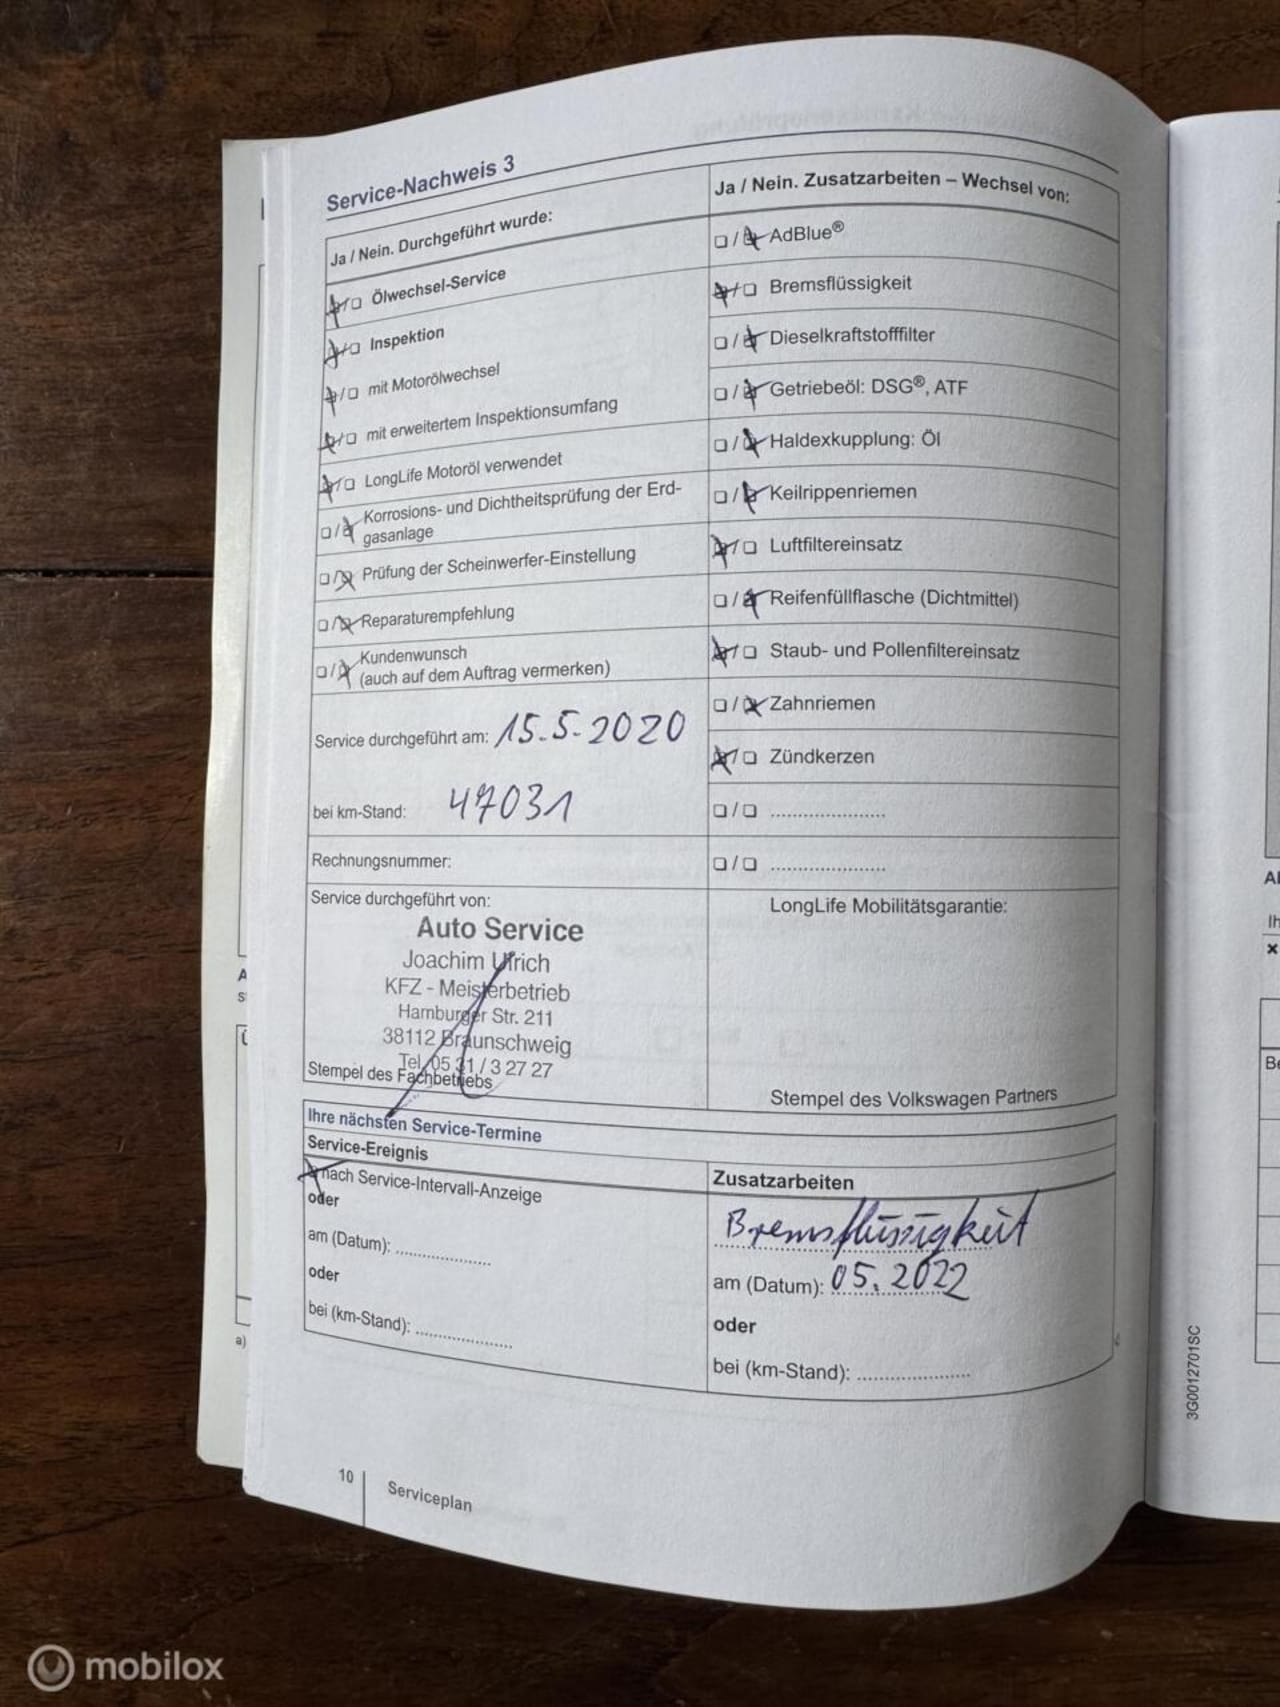 Service-Nachweis 3
Ja / Nein. Durchgeführt wurde:
☒/☐ Ölwechsel-Service
☒/☐ Inspektion
☒/☐ mit Motorölwechsel
☒/☐ mit erweitertem Inspektionsumfang
☒/☐ LongLife Motoröl verwendet
☐/☒ Korrosions- und Dichtheitsprüfung der Erd-
gasanlage
☐/☒ Prüfung der Scheinwerfer-Einstellung
☐/☒ Reparaturempfehlung
☐/☒ Kundenwunsch
(auch auf dem Auftrag vermerken)
Service durchgeführt am: 15.5.2020
bei km-Stand: 47031
Rechnungsnummer:
Service durchgeführt von:
Auto Service
Joachim Ulrich
KFZ - Meisterbetrieb
Hamburger Str. 211
38112 Braunschweig
Tel. 05 31 / 3 27 27
Stempel des Fachbetriebs
Ja / Nein. Zusatzarbeiten – Wechsel von:
☐/☒ AdBlue®
☒/☐ Bremsflüssigkeit
☐/☒ Dieselkraftstofffilter
☐/☒ Getriebeöl: DSG®, ATF
☐/☒ Haldexkupplung: Öl
☐/☒ Keilrippenriemen
☒/☐ Luftfiltereinsatz
☐/☒ Reifenfüllflasche (Dichtmittel)
☒/☐ Staub- und Pollenfiltereinsatz
☐/☒ Zahnriemen
☒/☐ Zündkerzen
☐/☐ ......................
☐/☐ ......................
LongLife Mobilitätsgarantie:
Stempel des Volkswagen Partners
Ihre nächsten Service-Termine
Service-Ereignis
☒ nach Service-Intervall-Anzeige
oder
am (Datum): ..................
oder
bei (km-Stand): ..................
Zusatzarbeiten
Bremsflüssigkeit
am (Datum): 05.2022
oder
bei (km-Stand): ......................
10
Serviceplan
3G0012701SC
a)
mobilox